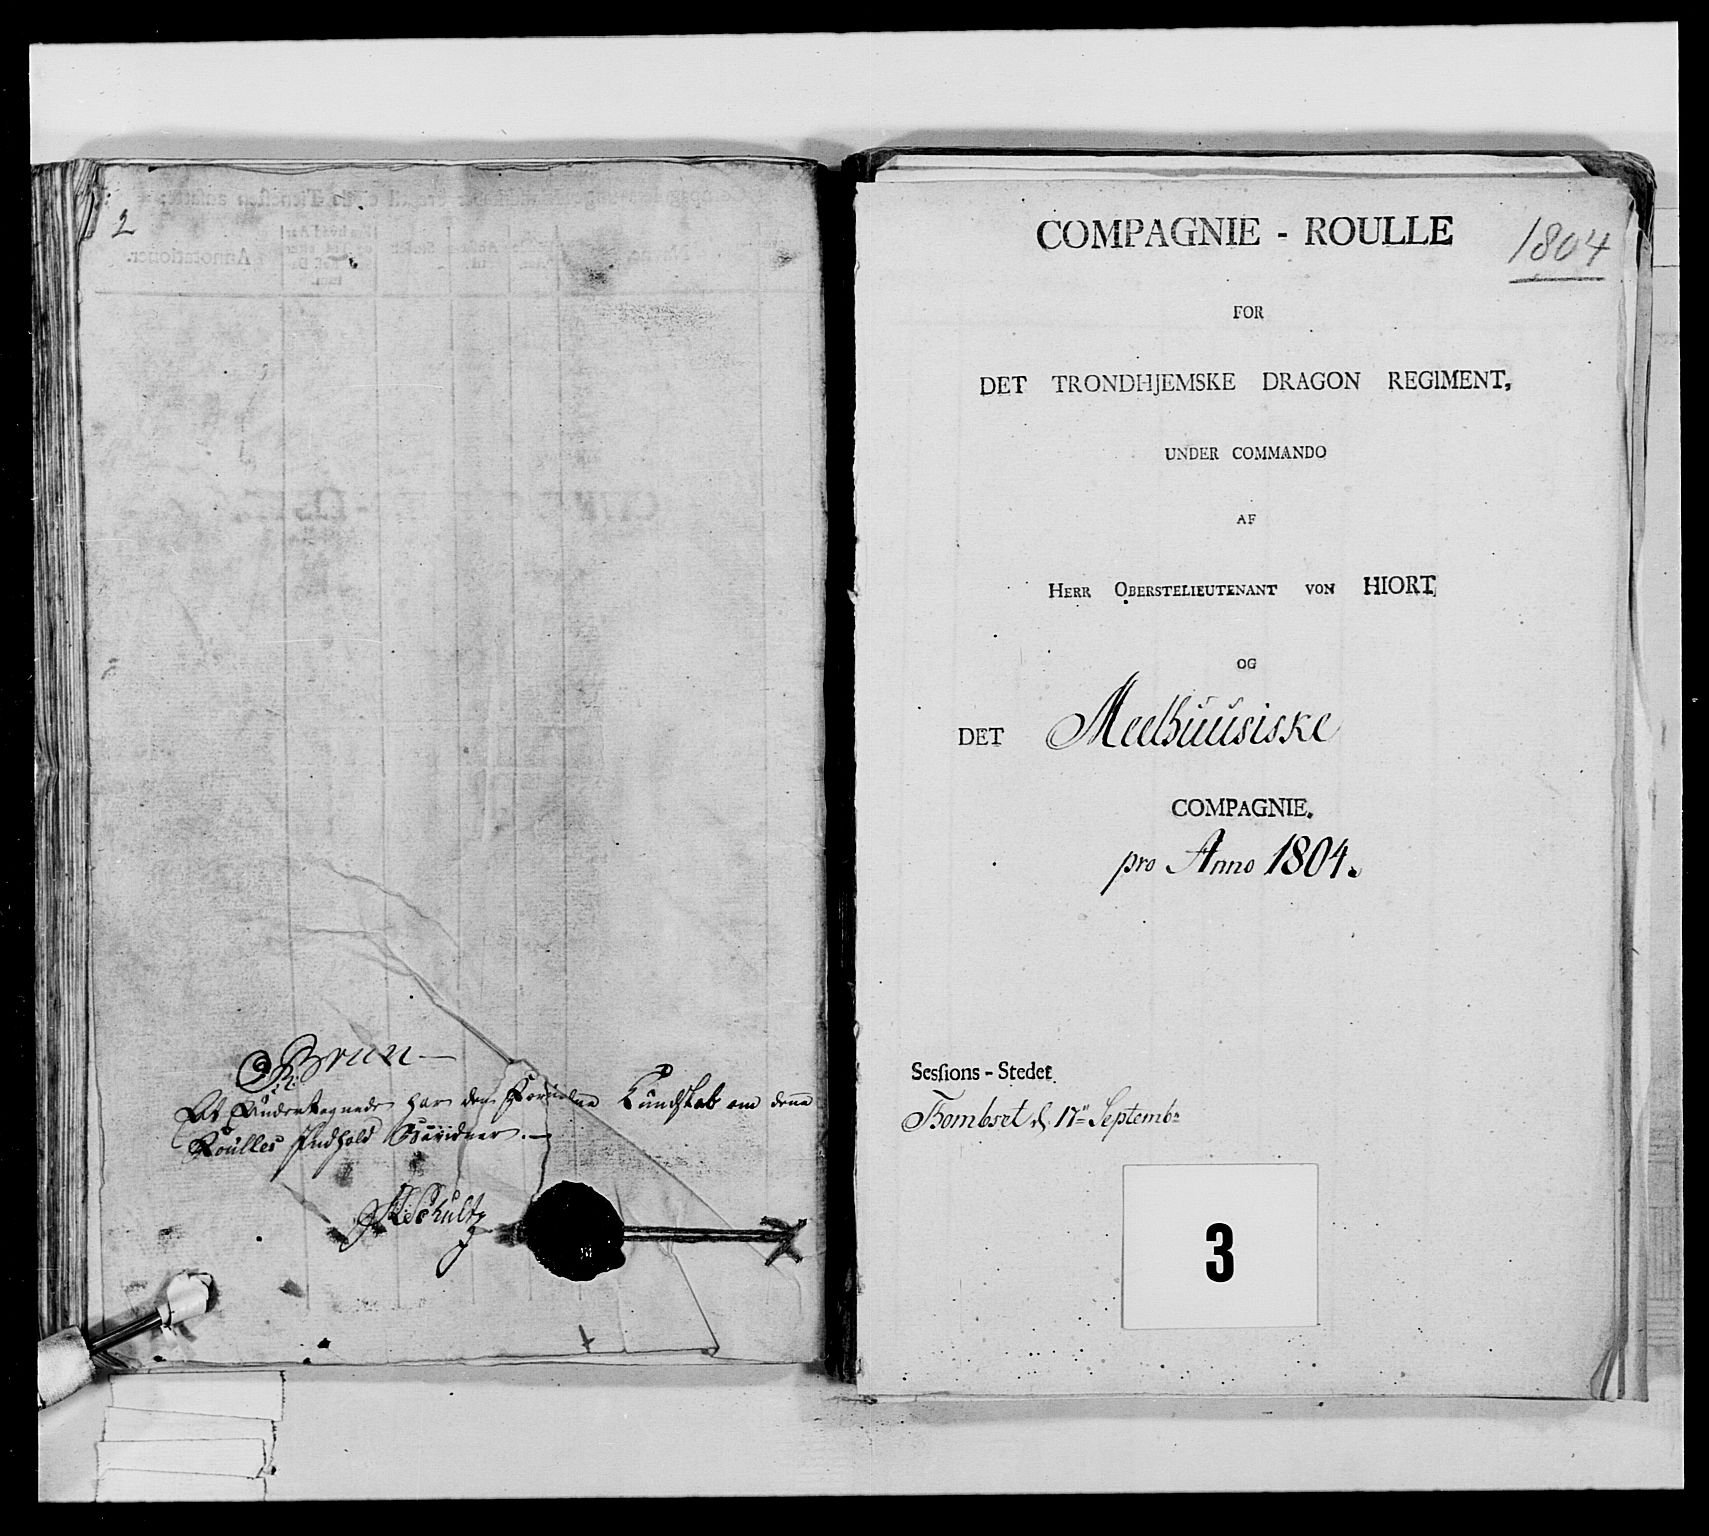 2
Brun
At Undertegnede har den Kundskab om denne
Roulles Indhold
Schultz
COMPAGNIE - ROULLE
1804
FOR
DET TRONDHJEMSKE DRAGON REGIMENT,
UNDER COMMANDO
AF
HERR OBERSTELIEUTENANT VON HIORT,
OG
DET Meelhuusiske
COMPAGNIE.
pro Anno 1804.
Sessions-Stedet
d. 17de Septembr
3